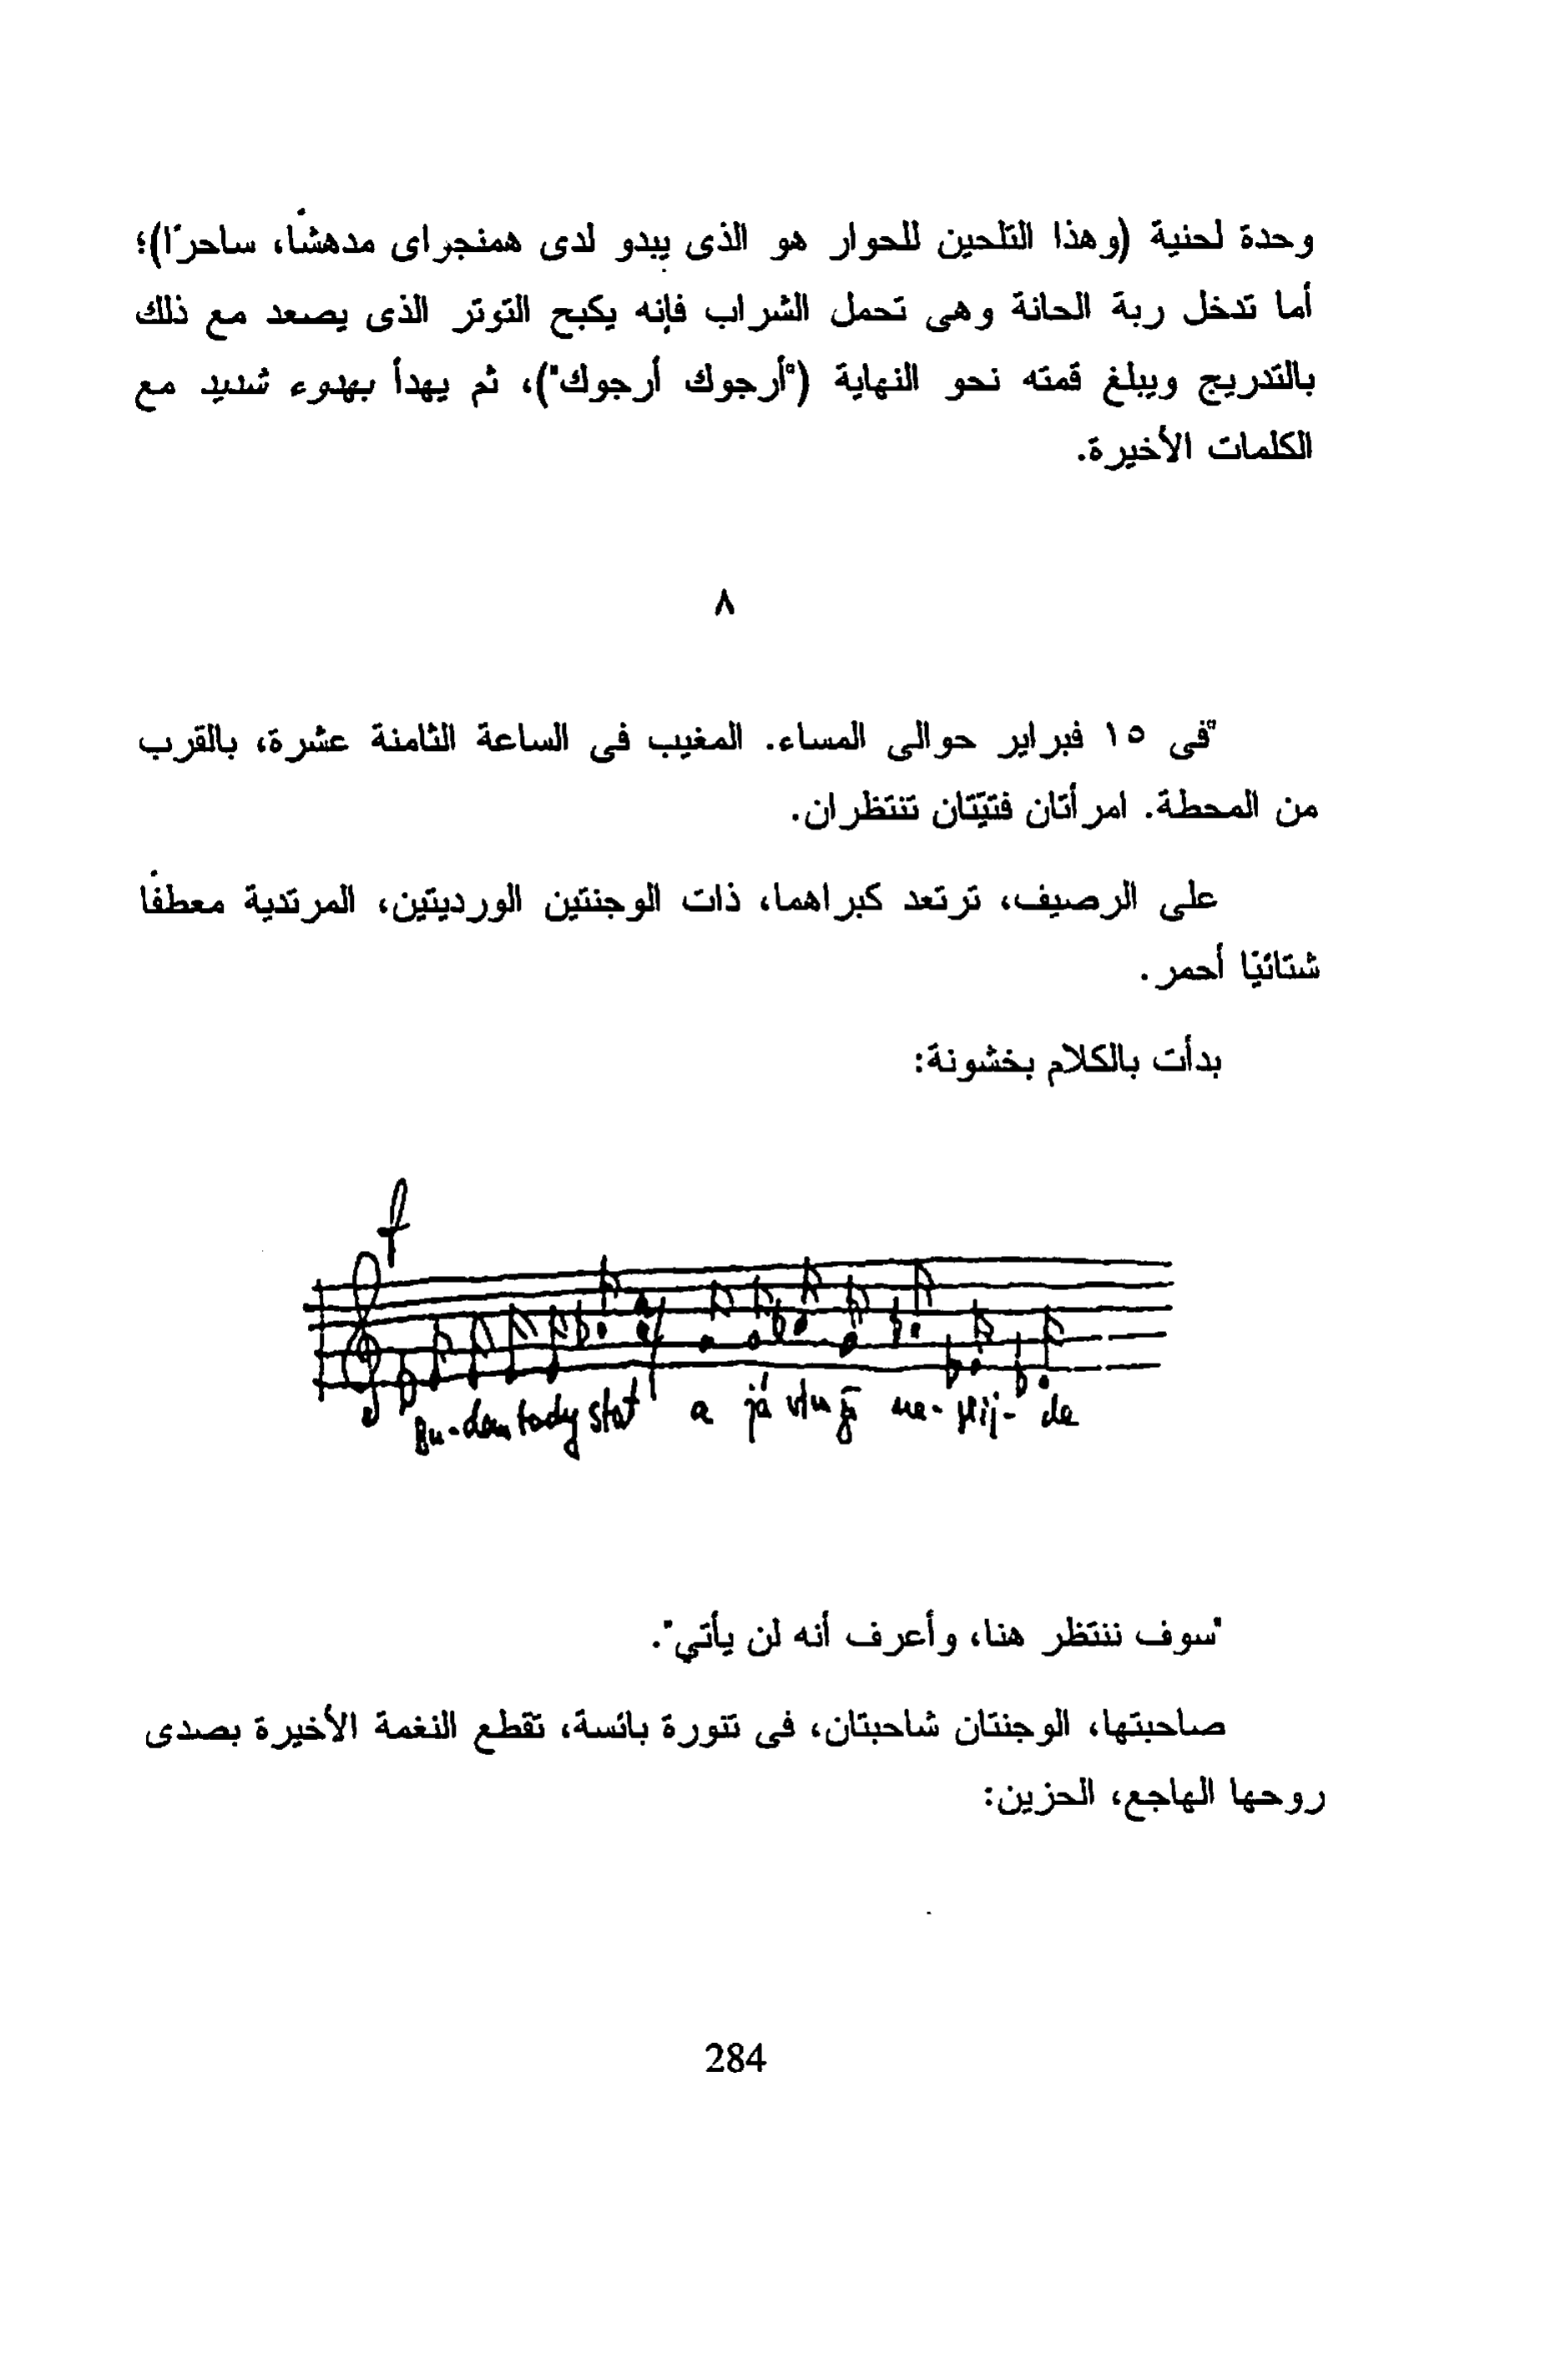 وحدة لحنية (وهذا التلحين للحوار هو الذى يبدو لدى همنجراى مدهشًا، ساحرًا)؛
أما تدخل ربة الحانة وهى تحمل الشراب فإنه يكبح التوتر الذى يصعد مع ذلك
بالتدريج ويبلغ قمته نحو النهاية ("أرجوك أرجوك")، ثم يهدأ بهدوء شديد مع
الكلمات الأخيرة.
٨
"فى ١٥ فبراير حوالى المساء. المغيب فى الساعة الثامنة عشرة، بالقرب
من المحطة. امرأتان فتيّتان تنتظران.
على الرصيف، ترتعد كبراهما، ذات الوجنتين الورديتين، المرتدية معطفًا
شتائيًا أحمر.
بدأت بالكلام بخشونة:
f
Bu-dem tady stát a já vím ne-přij-de
"سوف ننتظر هنا، وأعرف أنه لن يأتي".
صاحبتها، الوجنتان شاحبتان، فى تنورة بائسة، تقطع النغمة الأخيرة بصدى
روحها الهاجع، الحزين:
284